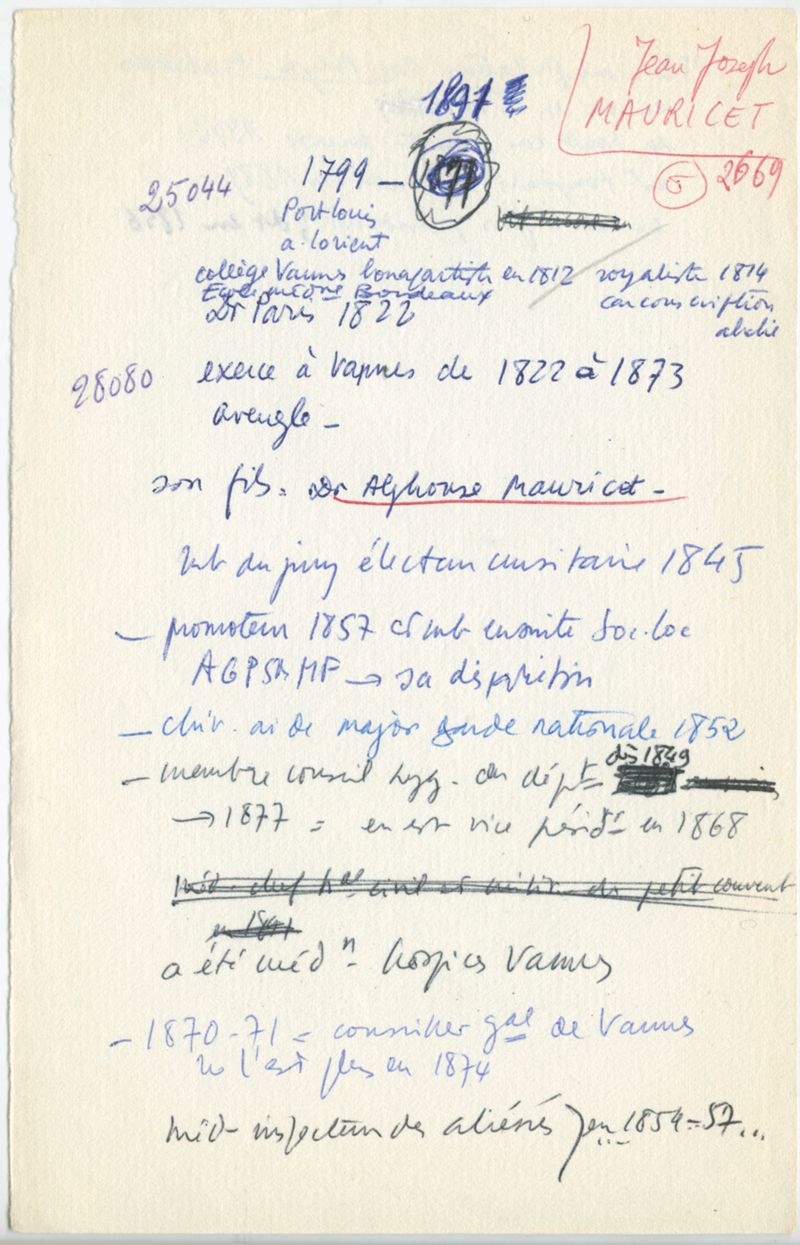 Jean Joseph
MAURICET
5 2669
1897
25044 1799 –
Port Louis
a Lorient
collège Vannes bonapartiste en 1812 royaliste 1814
car conscription
abolie
Ecole méd Bordeaux
Dr Paris 1822
28080 exerce à Vannes de 1822 à 1873
aveugle –
son fils = Dr Alphonse Mauricet –
mb du jury 1845
– promoteur 1857 et mb ensuite Soc. loc
AGPSAMF → sa disparition
– chir. aide major garde nationale 1852
– membre conseil hyg. du dépt dès 1849
→ 1877 = en est vice présidt en 1868
Méd. chef civil et du petit couvent
a été médn hospices Vannes
– 1870-71 = conseiller gal de Vannes
ne l'est plus en 1874
méd– inspecteur des aliénés } en 1854 = 57...